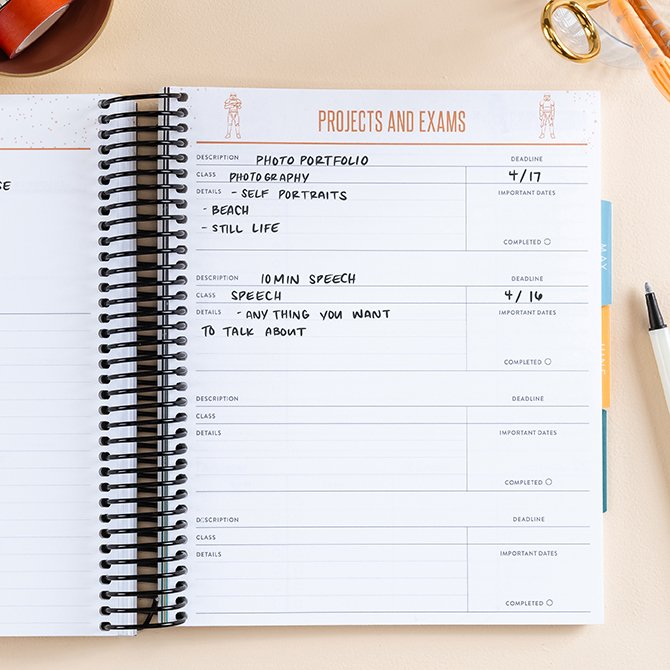 SE
PROJECTS AND EXAMS
DESCRIPTION PHOTO PORTFOLIO DEADLINE
CLASS PHOTOGRAPHY 4/17
DETAILS - SELF PORTRAITS IMPORTANT DATES
- BEACH
- STILL LIFE
COMPLETED
DESCRIPTION 10 MIN SPEECH DEADLINE
CLASS SPEECH 4/16
DETAILS - ANY THING YOU WANT IMPORTANT DATES
TO TALK ABOUT
COMPLETED
DESCRIPTION DEADLINE
CLASS
DETAILS IMPORTANT DATES
COMPLETED
DESCRIPTION DEADLINE
CLASS
DETAILS IMPORTANT DATES
COMPLETED
MAY
JUNE